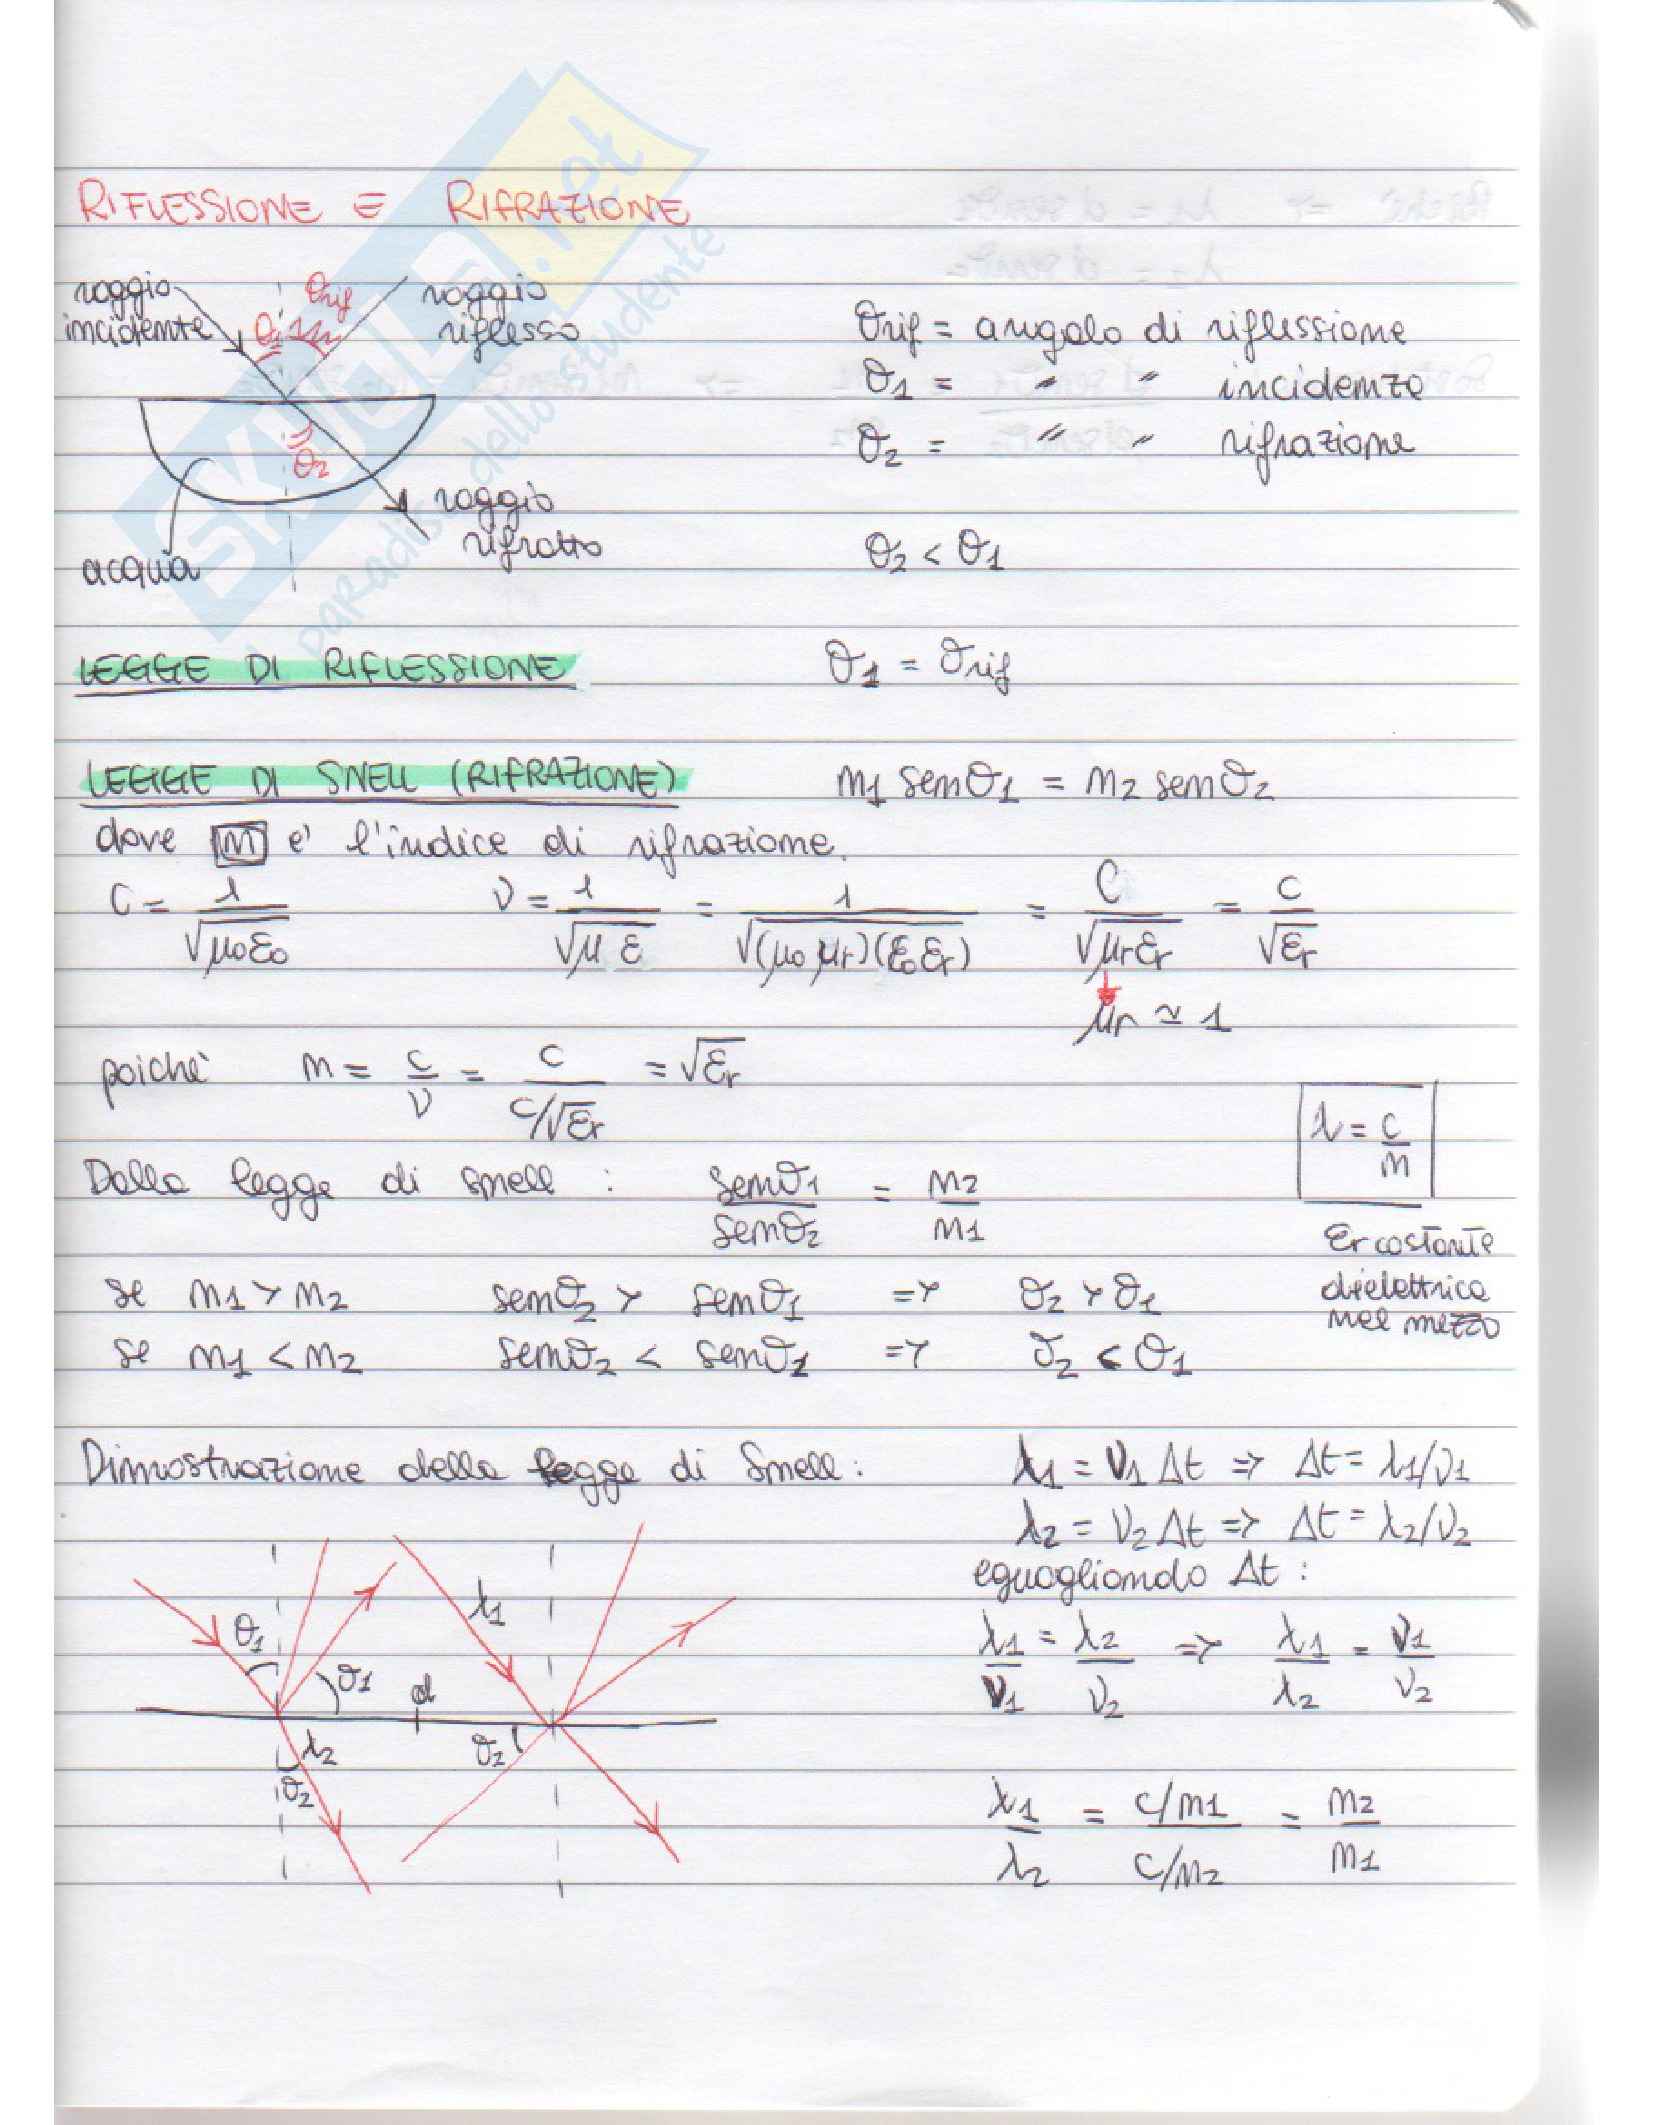 RIFLESSIONE E RIFRAZIONE
raggio incidente
θ1
θrif
raggio riflesso
θ2
raggio rifratto
acqua
θrif = angolo di riflessione
θ1 = " " incidenza
θ2 = " " rifrazione
θ2 < θ1
LEGGE DI RIFLESSIONE θ1 = θrif
LEGGE DI SNELL (RIFRAZIONE) n1 senθ1 = n2 senθ2
dove n e' l'indice di rifrazione.
C = 1/√μ0ε0 v = 1/√με = 1/√(μ0μr)(ε0εr) = C/√μrεr = c/√εr
μr ≃ 1
poichè n = c/v = c/(c/√εr) = √εr
λ = c/n
Dalla legge di snell : senθ1/senθ2 = n2/n1
εr costante
dielettrica
nel mezzo
se n1 > n2 senθ2 > senθ1 => θ2 > θ1
se n1 < n2 senθ2 < senθ1 => θ2 < θ1
Dimostrazione della legge di Snell:
λ1 = v1 Δt => Δt = λ1/v1
λ2 = v2 Δt => Δt = λ2/v2
eguagliando Δt :
λ1/v1 = λ2/v2 => λ1/λ2 = v1/v2
λ1/λ2 = (c/n1)/(c/n2) = n2/n1
θ1
θ1
λ1
d
λ2
θ2
θ2
SKUOLA.net
il paradiso dello studente